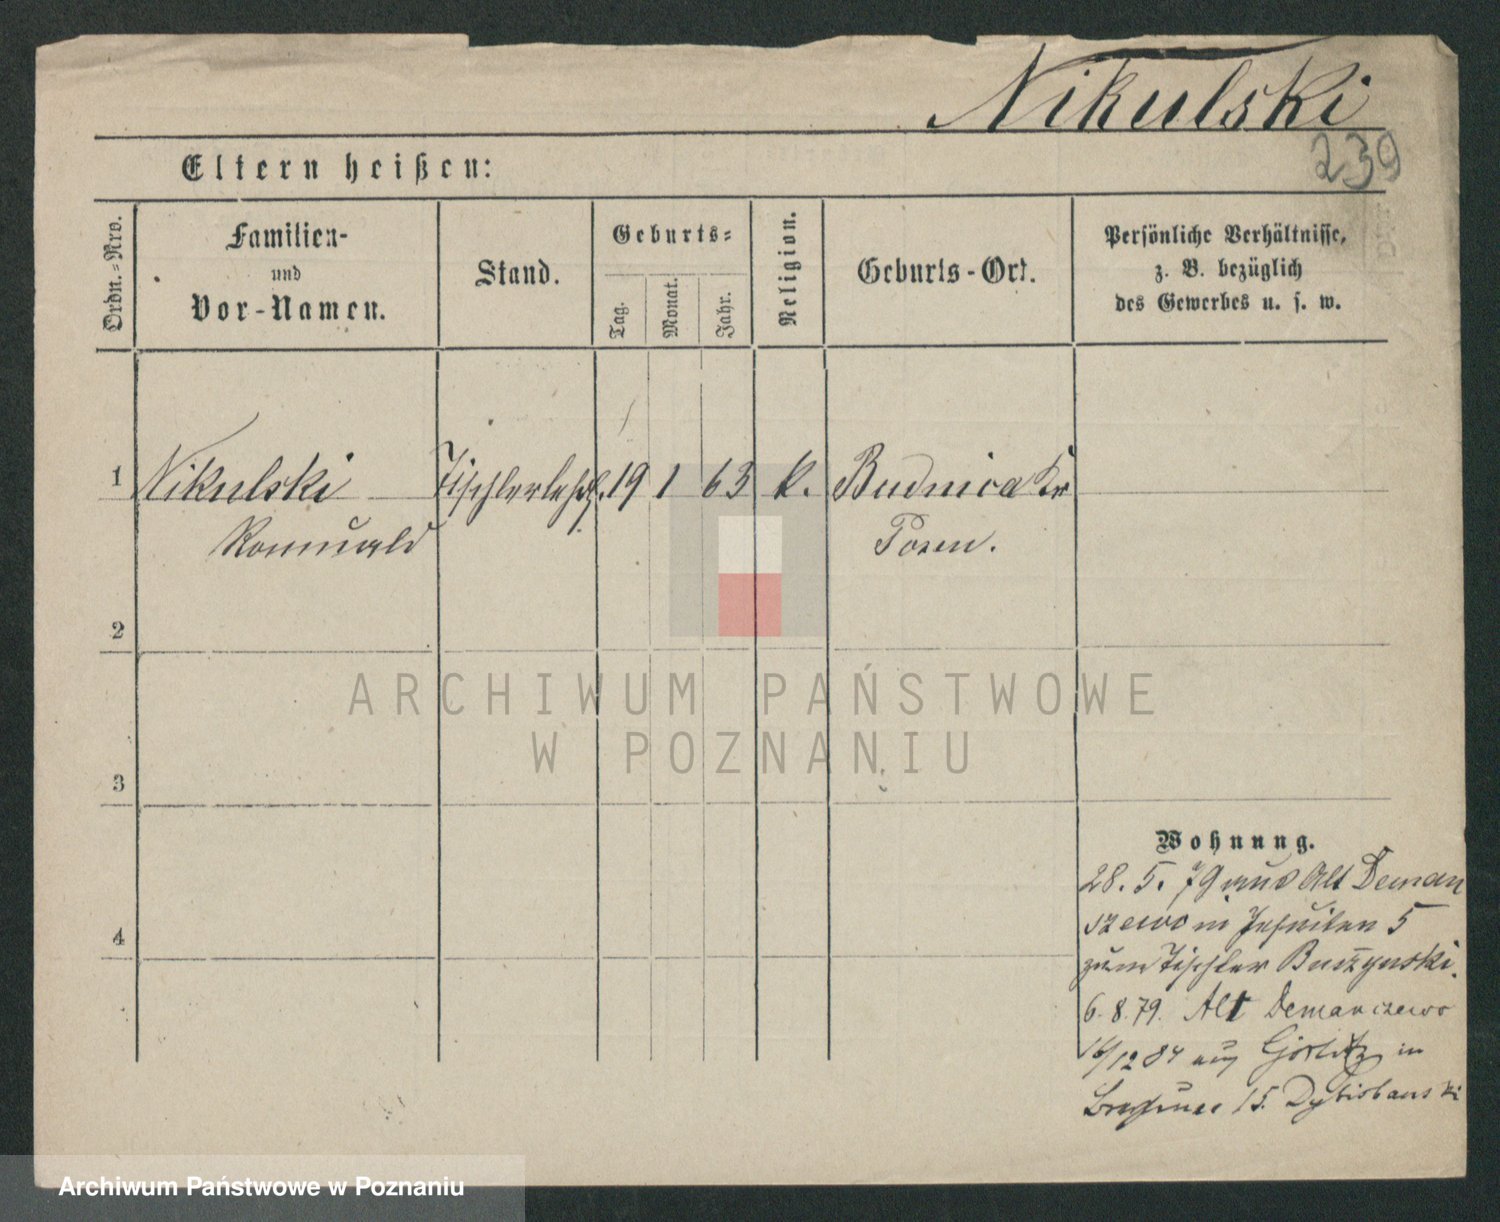 Nikulski
239
Eltern heißen:
Ordn.-Nro.
Familien-
und
Vor-Namen.
Stand.
Geburts-
Tag.
Monat.
Jahr.
Religion.
Geburts-Ort.
Persönliche Verhältnisse,
z. B. bezüglich
des Gewerbes u. s. w.
1 Nikulski Tischlerlehrl. 19 1 63 k. Budnica Kr
Romuald Posen.
2
3
4
ARCHIWUM PAŃSTWOWE
W POZNANIU
Wohnung.
28. 5. 79 aus Alt Deman
szewo in Jesuiten 5
zum Tischler Buszynski.
6. 8. 79. Alt Demanczewo
16/12 84 aus Görlitz in
15.
Archiwum Państwowe w Poznaniu